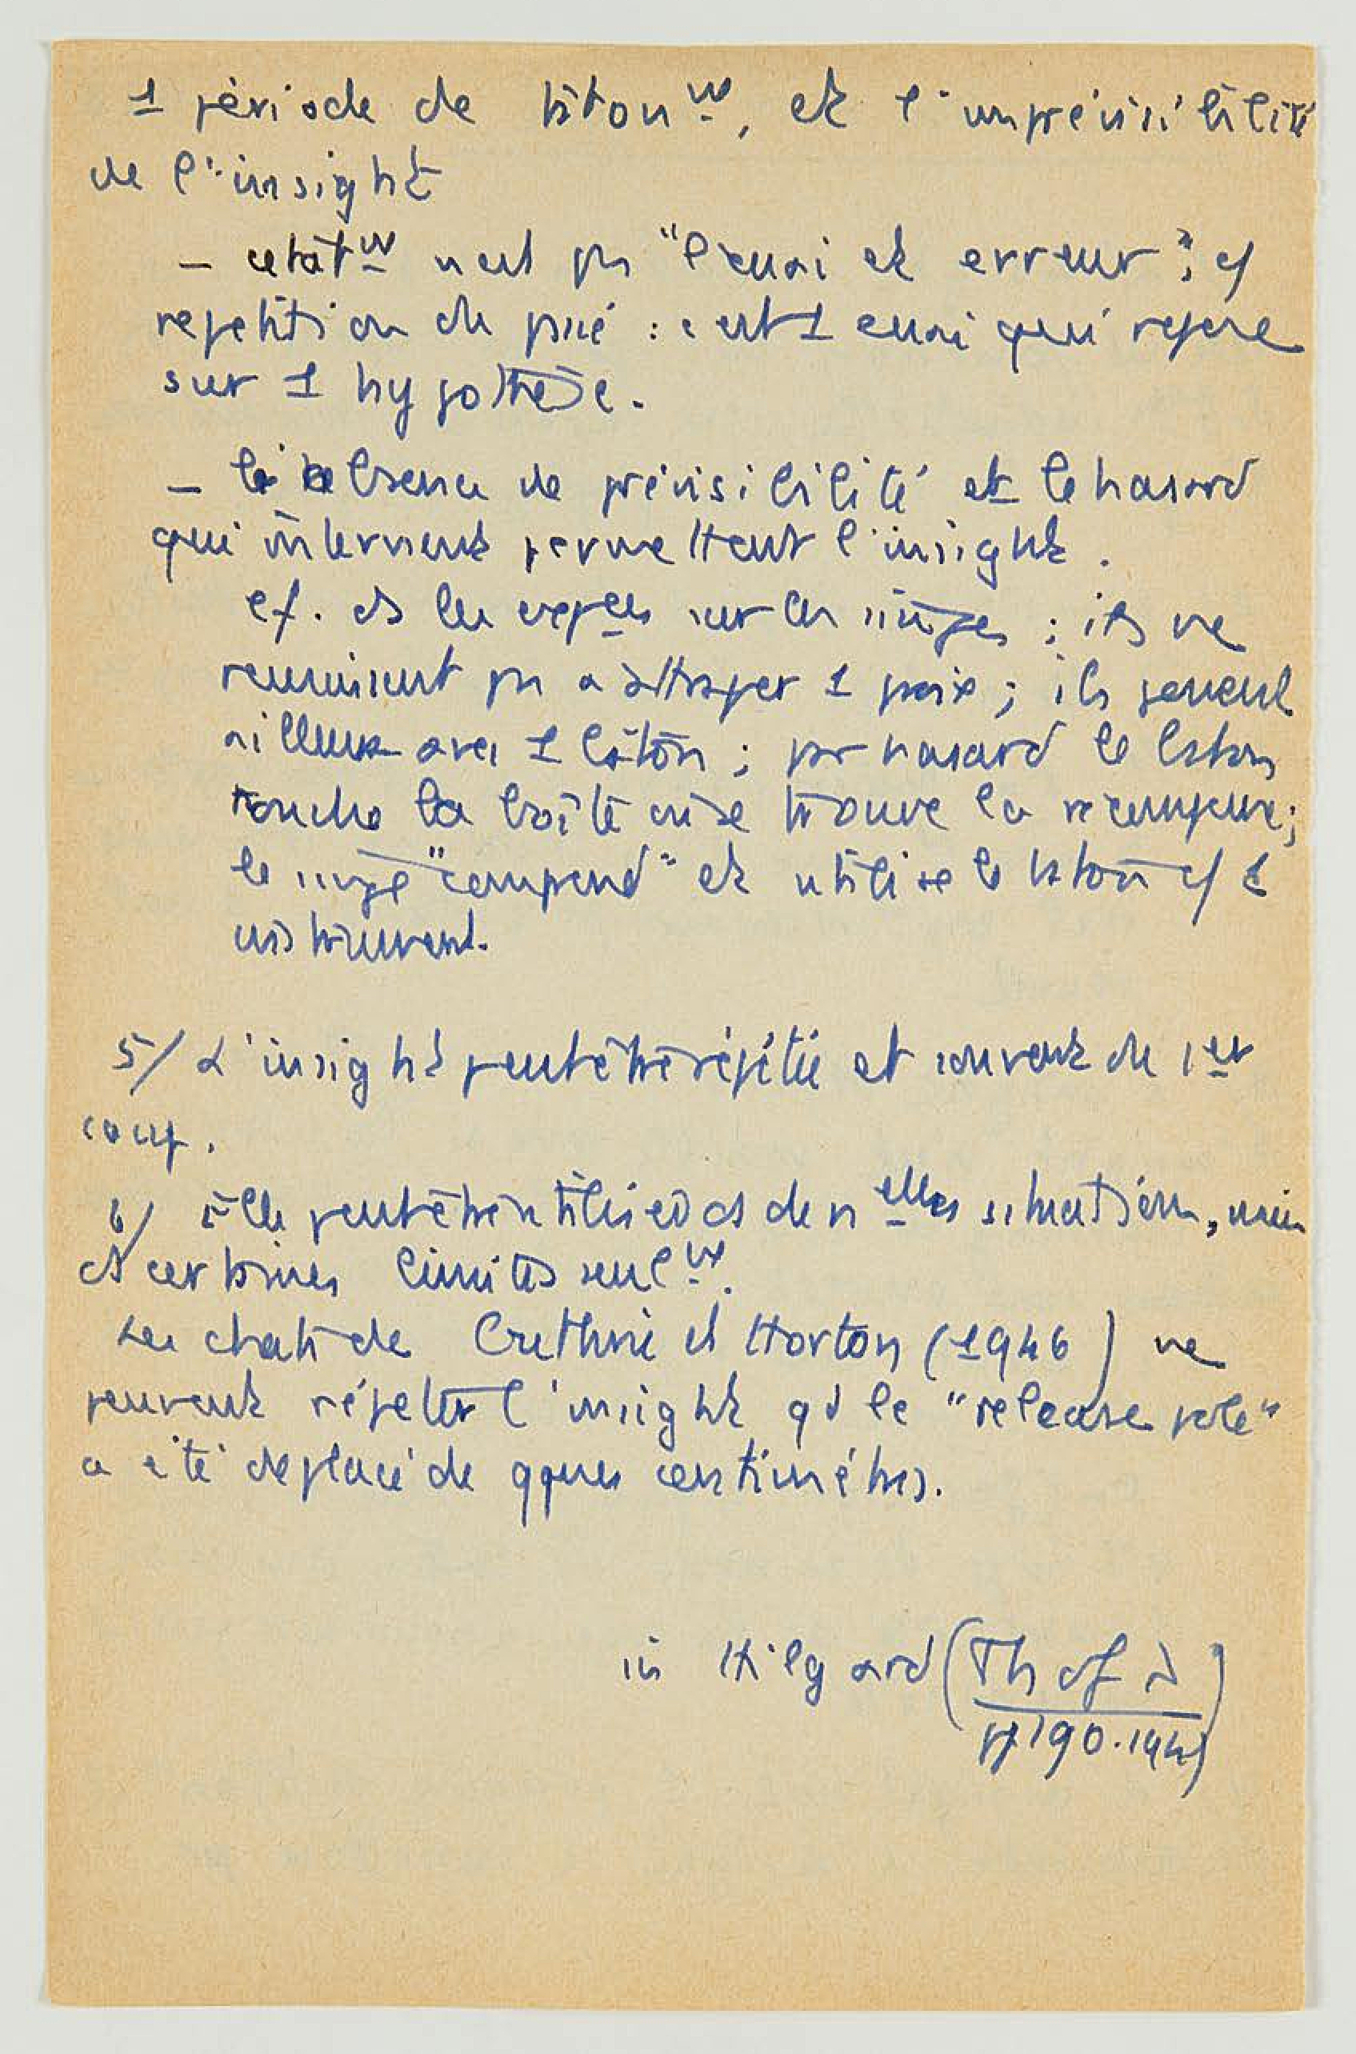 1 période de tâtonnt, et l'imprévisibilité
de l'insight
– ce tâtt n'est pas "l'essai et erreur"; cf
repetition du passé : c'est 1 essai qui repose
sur 1 hypothèse.
– l'absence de prévisibilité et le hasard
qui intervient permettent l'insight.
cf. ds les expces sur les singes : ils ne
reunissent pas a attraper 1 ; ils jouent
ailleurs avec 1 bâton ; par hasard le baton
touche la boîte où se trouve la récompense;
le singe "comprend" et utilise le bâton cf 1
instrument.
5/ L'insight peut être répétée et souvent du 1er
coup.
6/ Elle peut être utilisée ds de nelles situations, mais
ds certaines limites seult.
Les chats de Guthrie et Horton (1946) ne
peuvent répéter l'insight qd le "release pole"
a été déplacé de qques centimètres.
in Hilgard (Th of
pp 190.194)